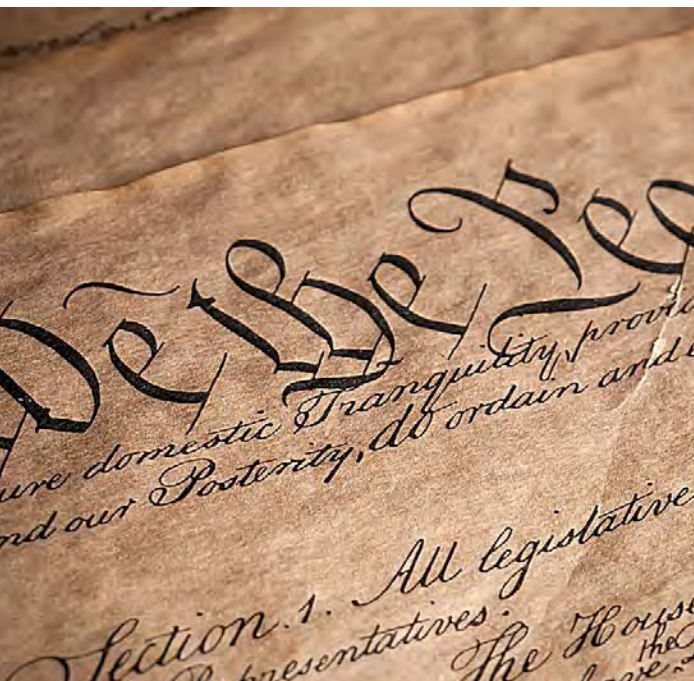 We the Peo
ure domestic Tranquility, provi
nd our Posterity, do ordain and
Section. 1. All legislative
presentatives.
The House
the